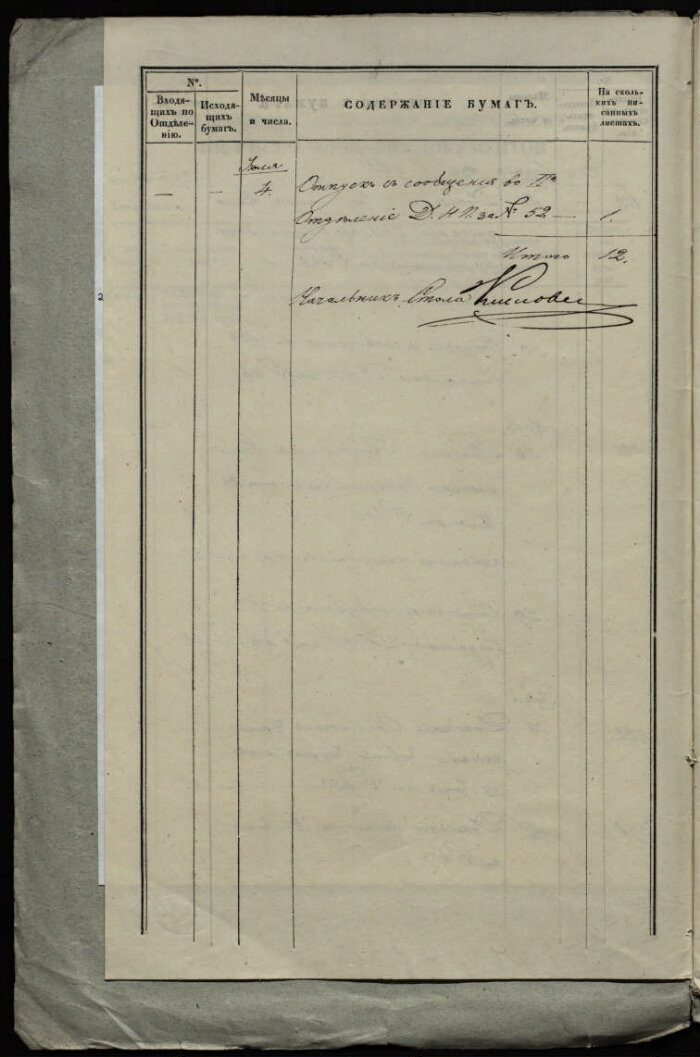 №.
Входя-
щихъ по
Отдѣле-
нію.
Исходя-
щихъ
бумагъ.
Мѣсяцы
и числа.
СОДЕРЖАНІЕ БУМАГЪ.
На сколь-
кихъ пи-
санныхъ
листахъ.
— — 4. Отпускъ съ сообщенія во IIе
Отдѣленіе Д. Н. П. за № 52 — 1.
Итого 12.
Начальникъ Стола